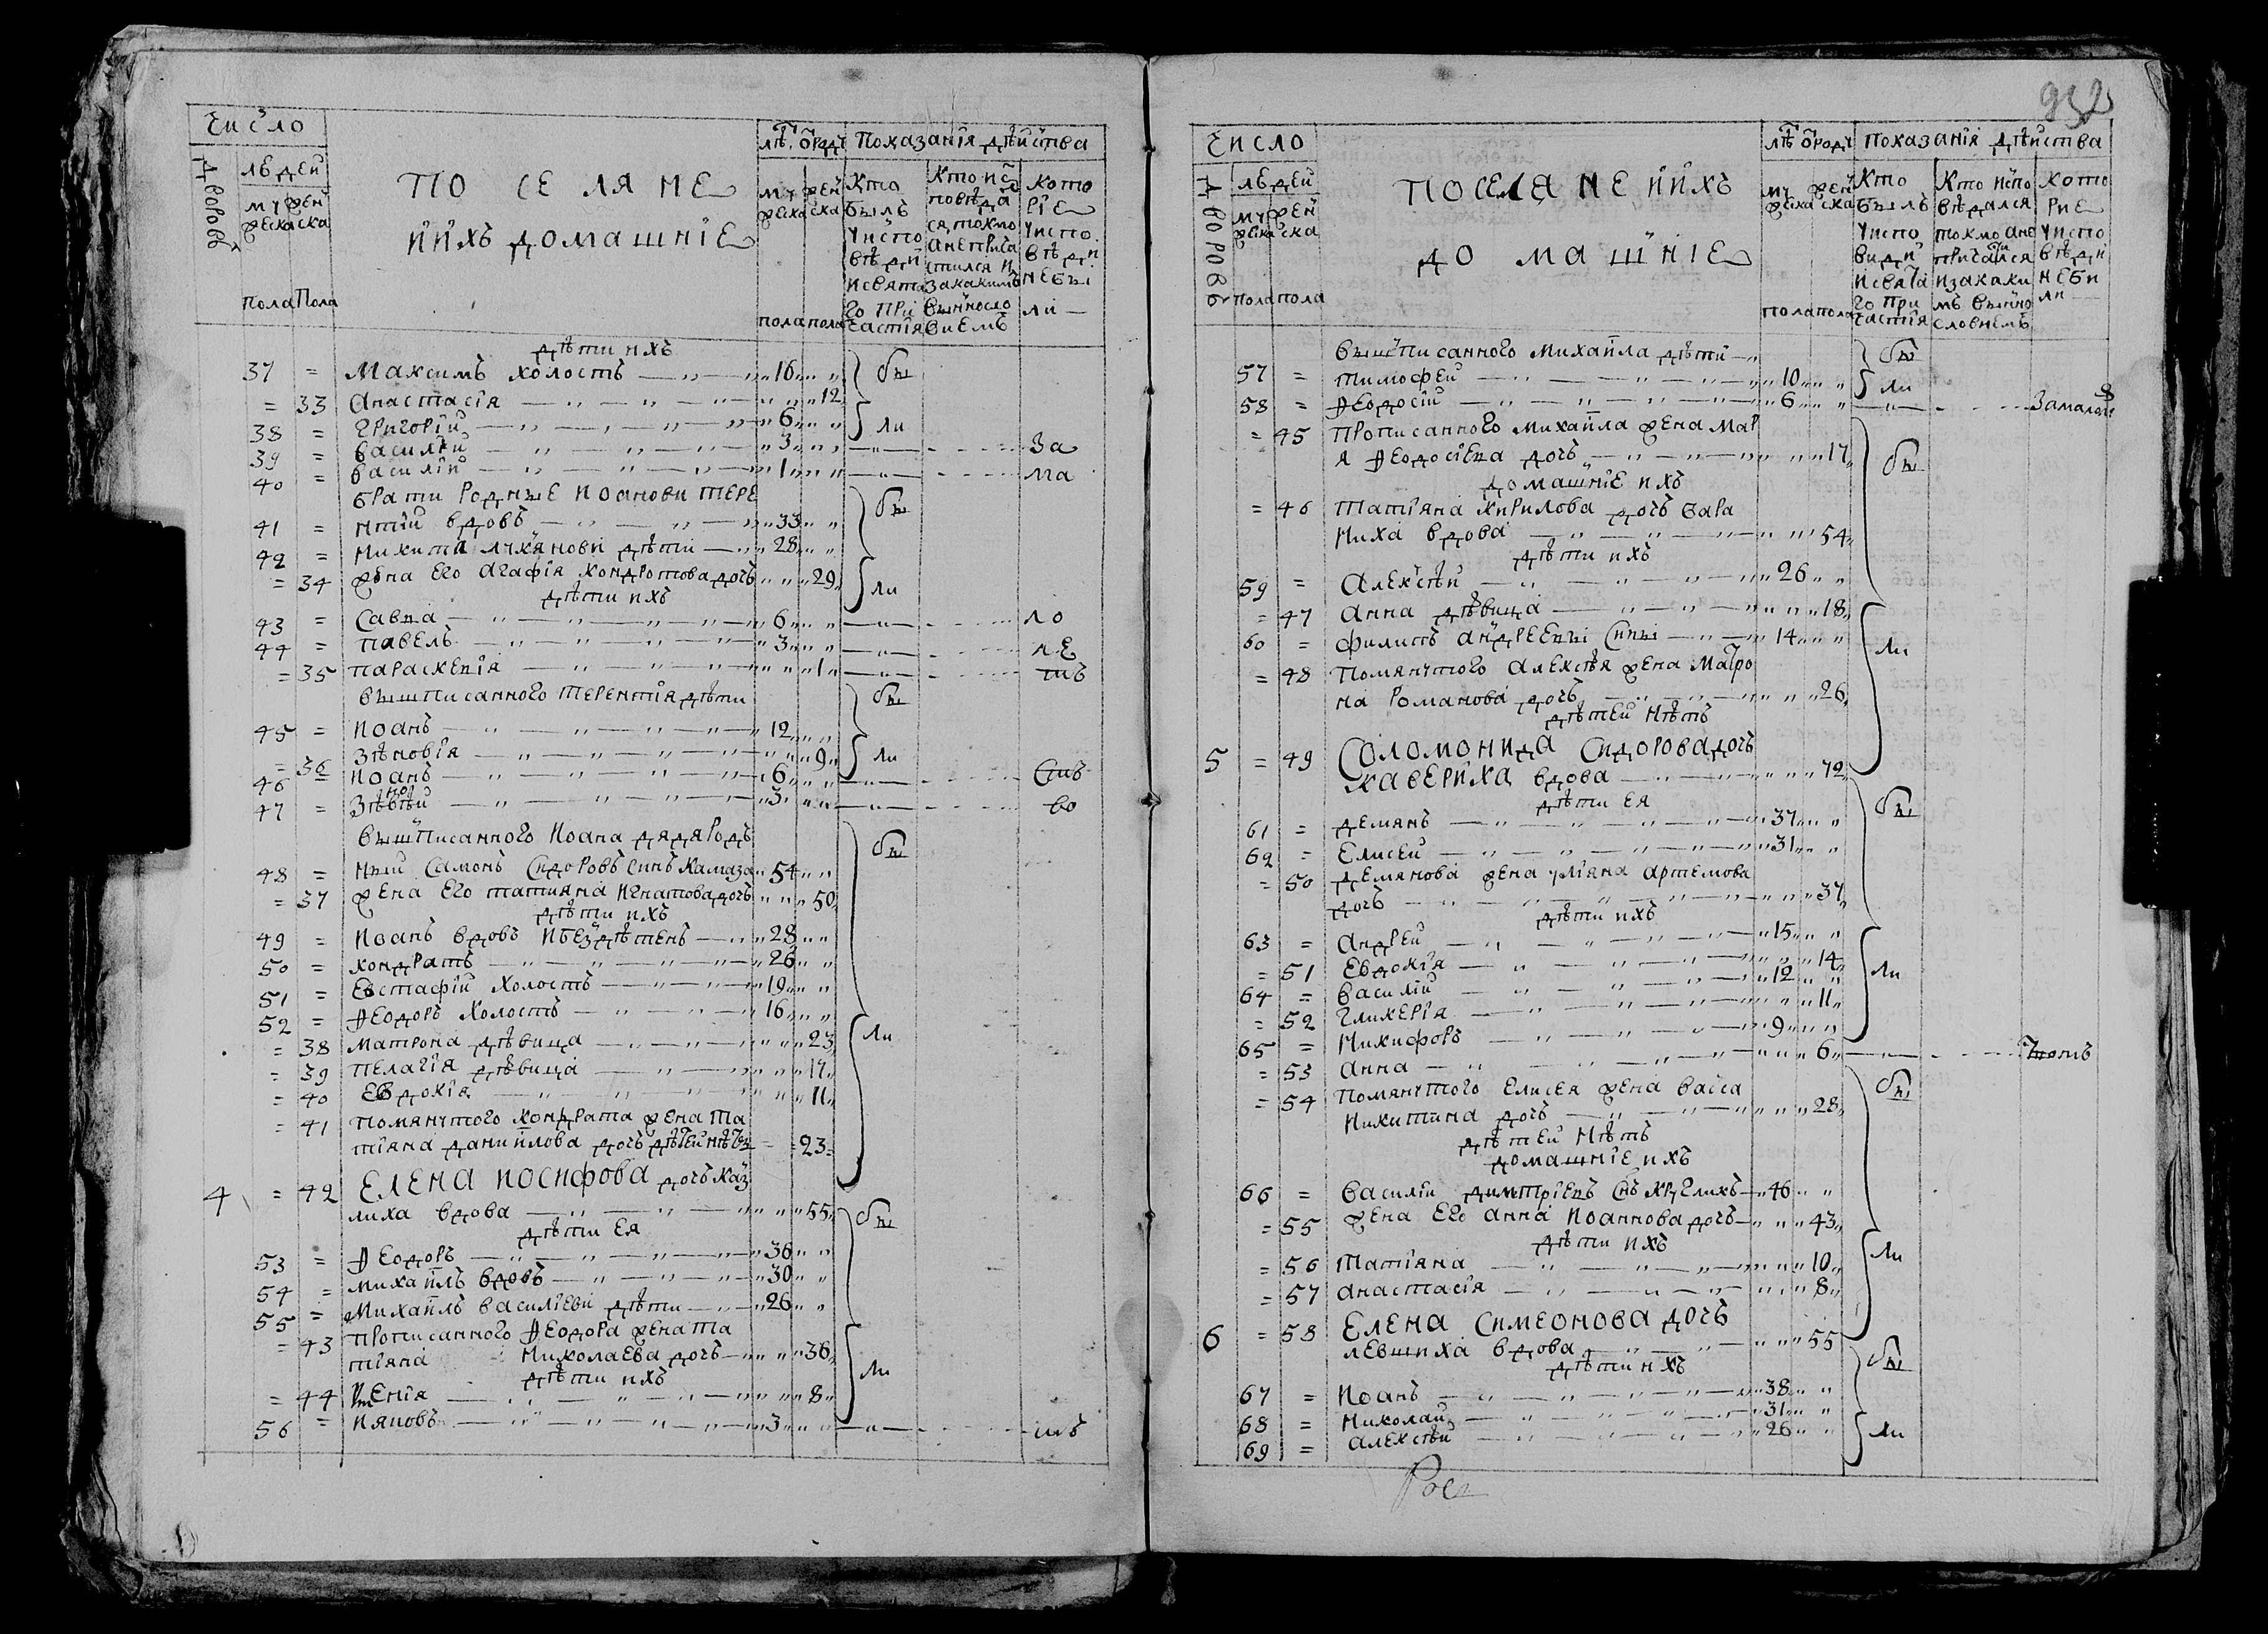 Число
лѣ. ѿ рад
Показанія дѣиства
Дворовъ
людей
мужеска
женска
пола
пола
ПОСЕЛЯНЕ
ИИХЪ ДОМАШНІЕ
мужеска
женска
пола
пола
Кто
былъ
у испо
вѣди
и свята
го при
частія
Кто ис
повѣда
ся токмо
а не прича
стился и
за какимъ
винносло
виемъ
кото
ріе
у испо
вѣди
не бы
ли —
дѣти ихъ
37 = Максимъ холостъ 16 бы
= 33 Анастасія 12
38 = Григорій 6 ли
39 = Василій 3 За
40 = Василій 1 ма
Брати родные Иоанови Тере
41 = нтій вдовъ 33 бы
42 = Никита Лукянови дѣти 28
= 34 жена его Агафія Кондротова дочъ 29 ли
дѣти ихъ
43 = Савва 6 ло
44 = Павелъ 3 лѣ
= 35 Параскевія 1 тъ
вышписанного Терентія дѣти бы
45 = Иоанъ 12
= 36 Зѣновія 9 ли
46 = Иоанъ 6 Ств
47 = Зѣновѣй 3 во
вышписанного Иоана дядя род
48 = ный Самонъ Сидоровъ синъ Камаза 54 бы
= 37 жена его татияна Игнатова дочъ 50
дѣти ихъ
49 = Иоанъ вдовъ и бездѣтенъ 28
50 = Кондратъ 26
51 = Евстафій холостъ 19
52 = Ѳеодоръ холостъ 16
= 38 Матрона дѣвица 23 ли
= 39 Пелагія дѣвица 17
= 40 Евдокія 11
= 41 Помянутого Кондрата жена Та
тіяна Даниилова дочъ дѣтей нѣтъ 23
4 = 42 ЕЛЕНА ИОСИФОВА дочъ Каз
лиха вдова 55 бы
дѣти ея
53 = Ѳеодоръ 36
54 = Михаилъ вдовъ 30
55 = Михаилъ Василіеви дѣти 26
= 43 Прописанного Ѳеодора жена Та
тіяна Николаева дочъ 36 ли
дѣти ихъ
= 44 енія 8
56 = Ияковъ 3 мъ
932
Число
лѣ ѿ роду
Показанія дѣиства
Дворовъ
людей
мужеска
женска
пола
пола
ПОСЕЛЯНЕ ИИХЪ
ДОМАШНІЕ
мужеска
женска
пола
пола
Кто
былъ
у испо
види
и свята
го при
частія
Кто испо
вѣдался
токмо а не
причастился
и за каки
мъ винно
словиемъ
кото
рие
у испо
вѣди
не би
ли —
вышписанного Михаила дѣти бы
57 = Тимофей 10 ли
58 = Ѳеодосій 6 Замалолѣ
= 45 Прописанного Михаила жена Мар
я Ѳеодосіева дочъ 17 бы
домашніе ихъ
= 46 Татіяна Кирилова дочъ Бара
ниха вдова 54
дѣти ихъ
59 = Алексѣй 26
= 47 Анна дѣвица 18
60 = Филипъ Андреевы Сины 14 ли
= 48 Помянутого Алексѣя жена Матро
на Романова дочъ 26
дѣтей нѣтъ
5 = 49 Соломонида Сидорова дочъ
Кавериха вдова 72
дѣти ея бы
61 = Демянъ 37
62 = Елисей 31
= 50 Демянова жена Уліяна Артемова
дочъ 37
дѣти ихъ
63 = Андрей 15
= 51 Евдокія 14 ли
64 = Василій 12
= 52 Гликерія 11
65 = Никифоръ 9
= 53 Анна 6
= 54 Помянутого Елисея жена Васса бы
Никитина дочъ 28
дѣтей нѣтъ
домашніе ихъ
66 = Василій Димтріевъ снъ Круглихъ 46
= 55 жена его Анна Иоаннова дочъ 43
дѣти ихъ
= 56 Татіяна 10 ли
= 57 Анастасія 8
6 = 58 Елена Симеонова дочъ
Левшиха вдова 55
дѣти ихъ бы
67 = Иоанъ 38
68 = Николай 31
69 = Алексѣй 26 ли